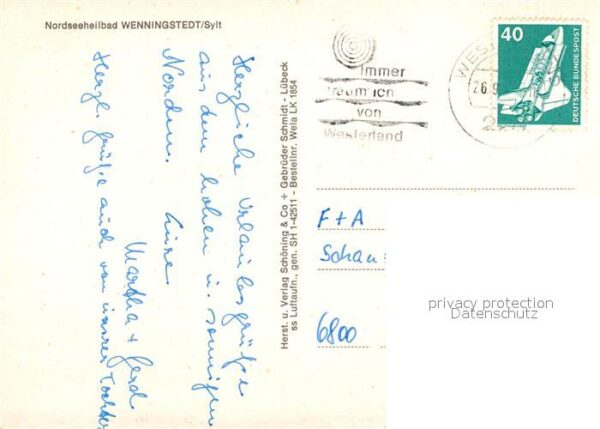 Nordseeheilbad WENNINGSTEDT/Sylt
Herzliche Urlaubsgrüße
aus dem hohen u. sonnigen
Norden.
Martha + Gerd
Herzl. Grüße auch von unserer Tochter
Herst. u. Verlag Schöning & Co + Gebrüder Schmidt - Lübeck
ss Luftaufn., gen. SH 1-42511 - Bestellnr. Wela LK 1854
immer
träum ich
von
Westerland
WES
26.9
40
DEUTSCHE BUNDESPOST
F + A
Schau
6800
privacy protection
Datenschutz